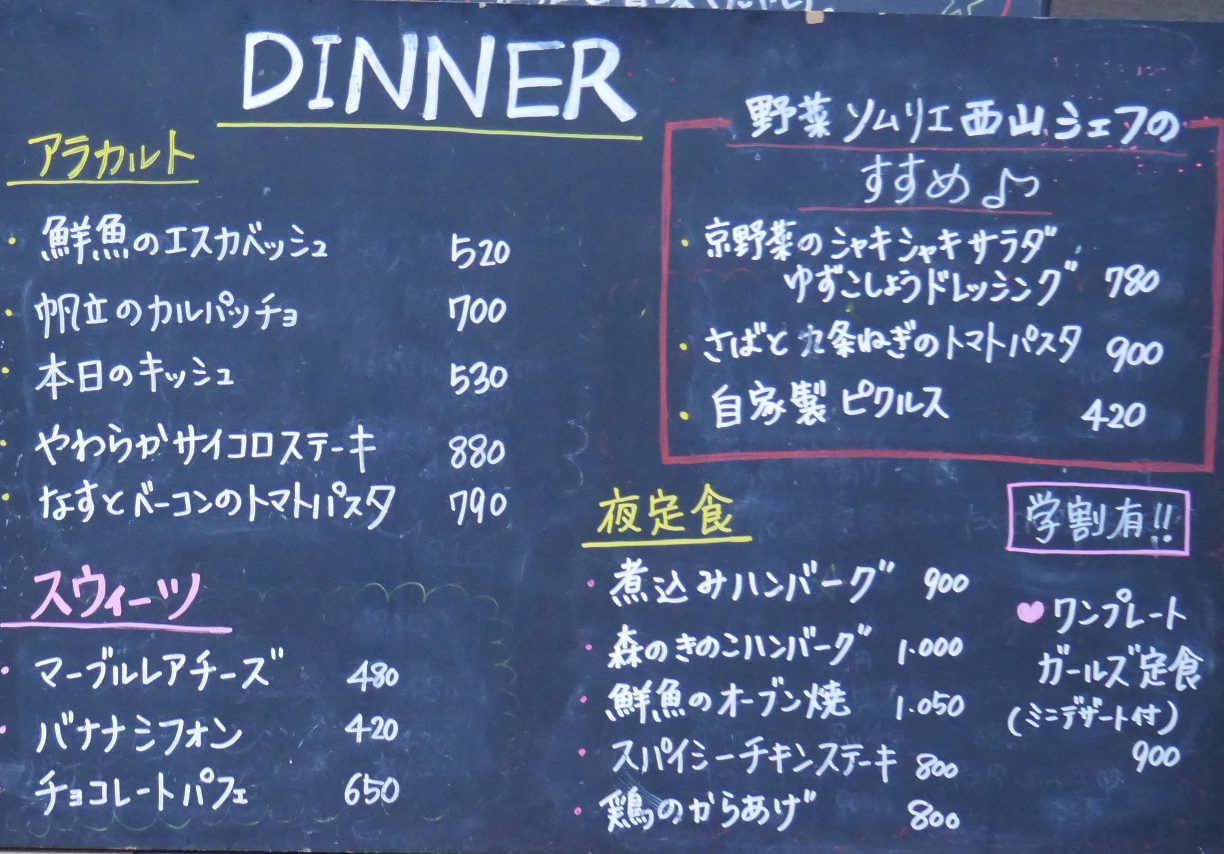 DINNER
アラカルト
・鮮魚のエスカベッシュ 520
・帆立のカルパッチョ 700
・本日のキッシュ 530
・やわらかサイコロステーキ 880
・なすとベーコンのトマトパスタ 790
スウィーツ
・マーブルレアチーズ 480
・バナナシフォン 420
・チョコレートパフェ 650
野菜ソムリエ西山シェフの
すすめ♪
・京野菜のシャキシャキサラダ
ゆずこしょうドレッシング 780
・さばと九条ねぎのトマトパスタ 900
・自家製ピクルス 420
夜定食
・煮込みハンバーグ 900
・森のきのこハンバーグ 1.000
・鮮魚のオーブン焼 1.050
・スパイシーチキンステーキ 800
・鶏のからあげ 800
学割有!!
♥ワンプレート
ガールズ定食
(ミニデザート付)
900